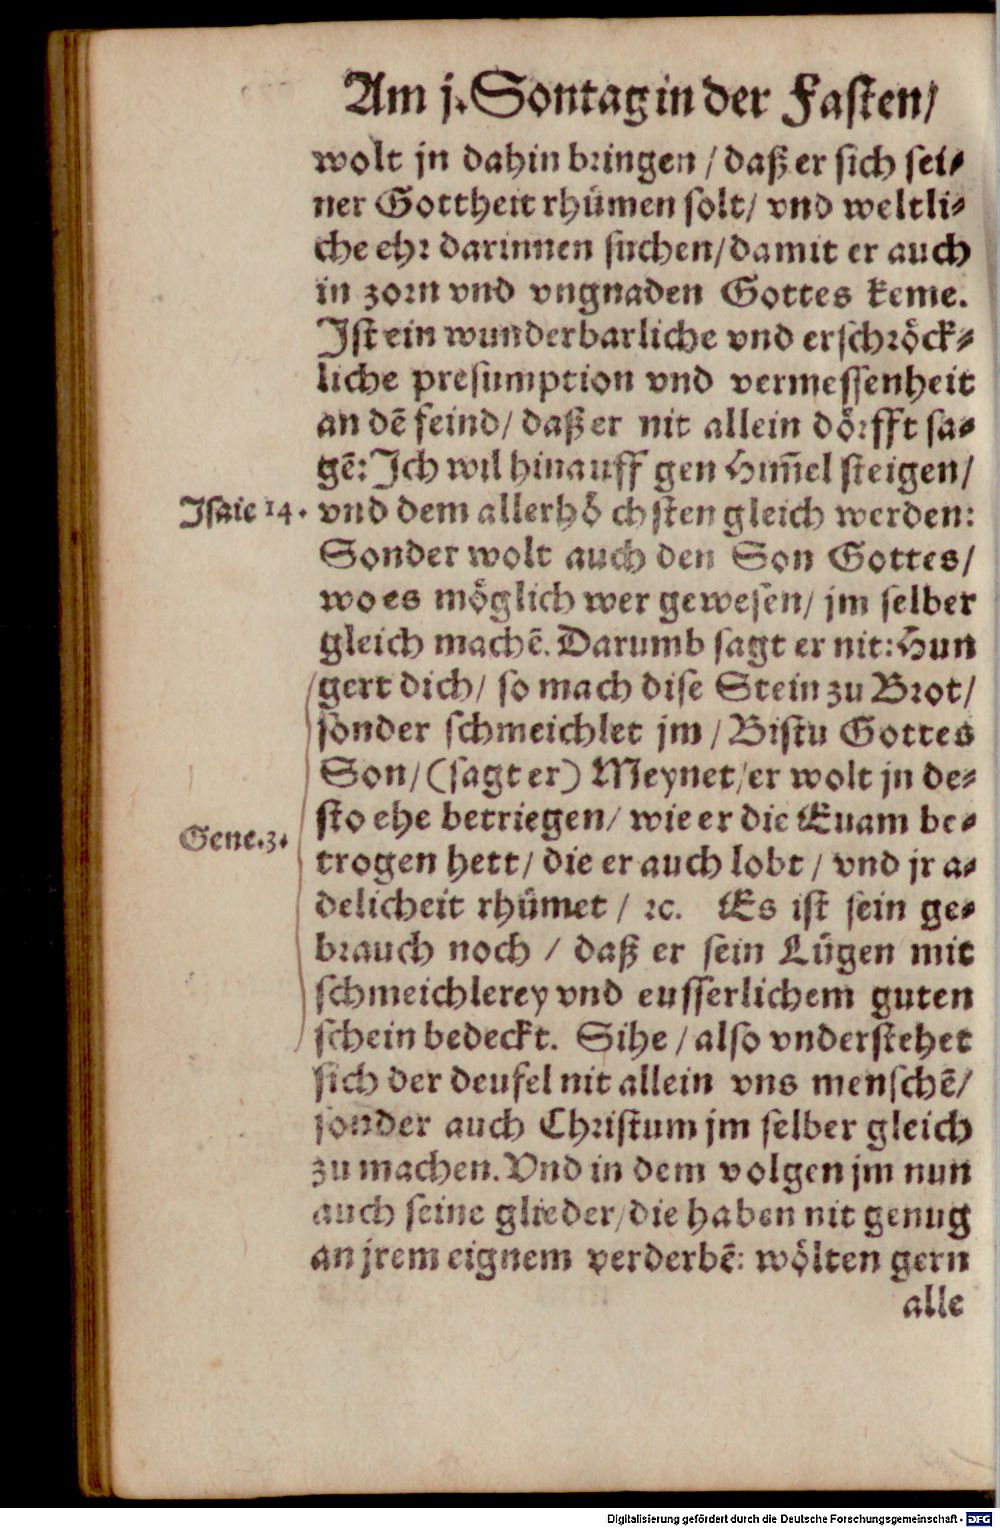 Am j. Sontag in der Fasten/
wolt jn dahin bringen / daß er sich sei⸗
ner Gottheit rhümen solt/ vnd weltli⸗
che ehr darinnen suchen/ damit er auch
in zorn vnd vngnaden Gottes keme.
Ist ein wunderbarliche vnd erschröck⸗
liche presumption vnd vermessenheit
an dē feind/ daß er nit allein dörfft sa⸗
gē: Ich wil hinauff gen Him̄el steigen/
Isaie 14. vnd dem allerhöchsten gleich werden:
Sonder wolt auch den Son Gottes/
wo es möglich wer gewesen/ jm selber
gleich machē. Darumb sagt er nit: Hun
gert dich/ so mach dise Stein zu Brot/
sonder schmeichlet jm / Bistu Gottes
Son/ (sagt er) Meynet/ er wolt jn de⸗
sto ehe betriegen/ wie er die Euam be⸗
Gene. 3.
trogen hett/ die er auch lobt / vnd jr a⸗
delicheit rhümet / ꝛc. Es ist sein ge⸗
brauch noch / daß er sein Lügen mit
schmeichlerey vnd eusserlichem guten
schein bedeckt. Sihe / also vnderstehet
sich der deufel nit allein vns menschē/
sonder auch Christum jm selber gleich
zu machen. Vnd in dem volgen jm nun
auch seine glieder/ die haben nit genug
an jrem eignem verderbē: wölten gern
alle
Digitalisierung gefördert durch die Deutsche Forschungsgemeinschaft - DFG